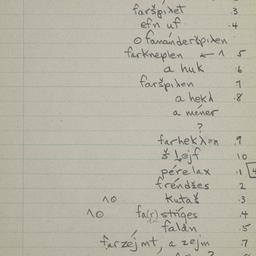 faršpiλet .3
efn uf .4
o fananderšpiλen
farkneplen ← ^ 5
a huk .6
faršpiλen 7
a hekλ .8
a mener
?
farhekλen .9
š lejf 10
perelax .1 4
frendšes 2
^o kutaš .3
^o fa(r)striges .4
faldn .5
farzejmt, a zejm .7